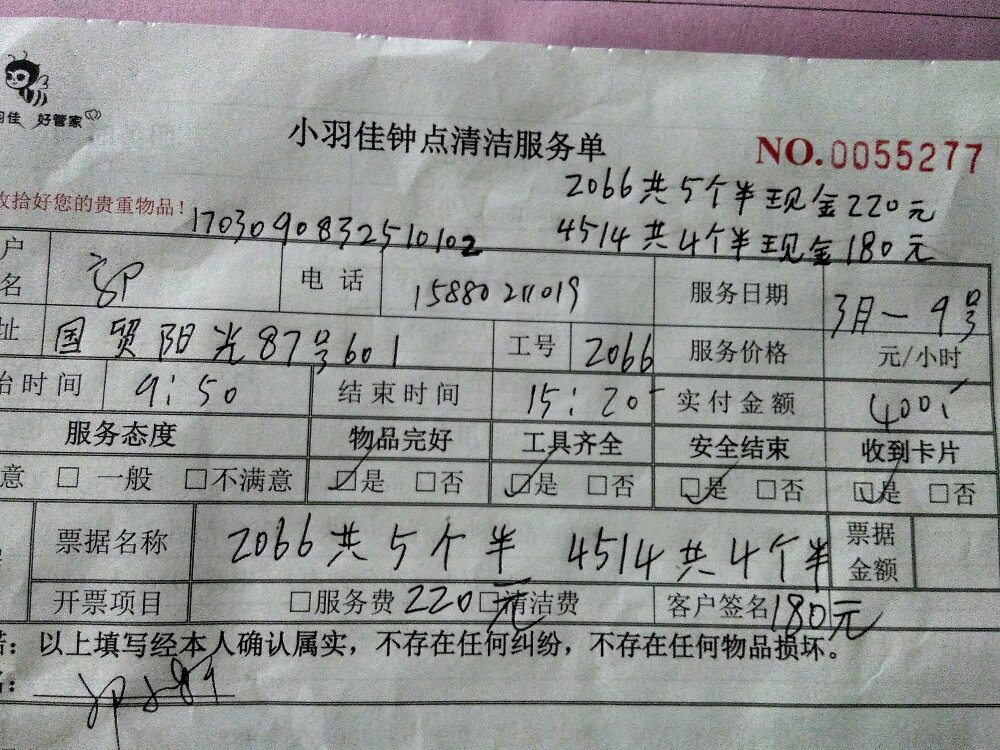 羽佳 好管家
小羽佳钟点清洁服务单
NO.0055277
2066共5个半现金220元
收拾好您的贵重物品！
1703090832510102
4514共4个半现金180元
户名 郭 电话 15880211019 服务日期 3月—9号
址 国贸阳光87号601 工号 2066 服务价格 元/小时
始时间 9:50 结束时间 15:20 实付金额 400
服务态度 物品完好 工具齐全 安全结束 收到卡片
意 □一般 □不满意 ☑是 □否 ☑是 □否 ☑是 □否 ☑是 □否
票据名称 2066共5个半 4514共4个半 票据金额
开票项目 □服务费 220元 □清洁费 客户签名 180元
诺：以上填写经本人确认属实，不存在任何纠纷，不存在任何物品损坏。
名：